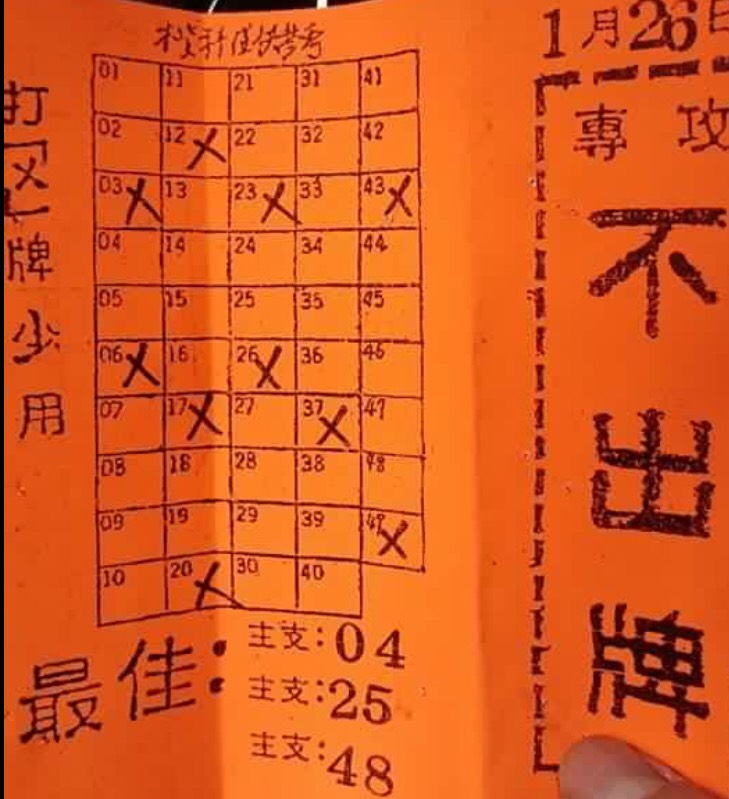 1月26日
專攻
不出牌
打「X」牌少用
01 11 21 31 41
02 12 X 22 32 42
03 X 13 23 X 33 43 X
04 14 24 34 44
05 15 25 35 45
06 X 16 26 X 36 46
07 17 X 27 37 X 47
08 18 28 38 48
09 19 29 39 49 X
10 20 X 30 40
最佳:
主支:04
主支:25
主支:48